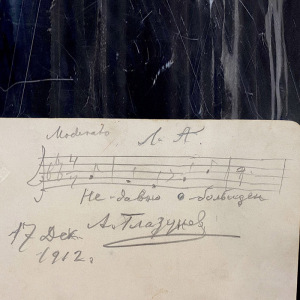 Moderato
Л. А.
Не-давно о-больщен
А. Глазунов
17 Дек.
1912.